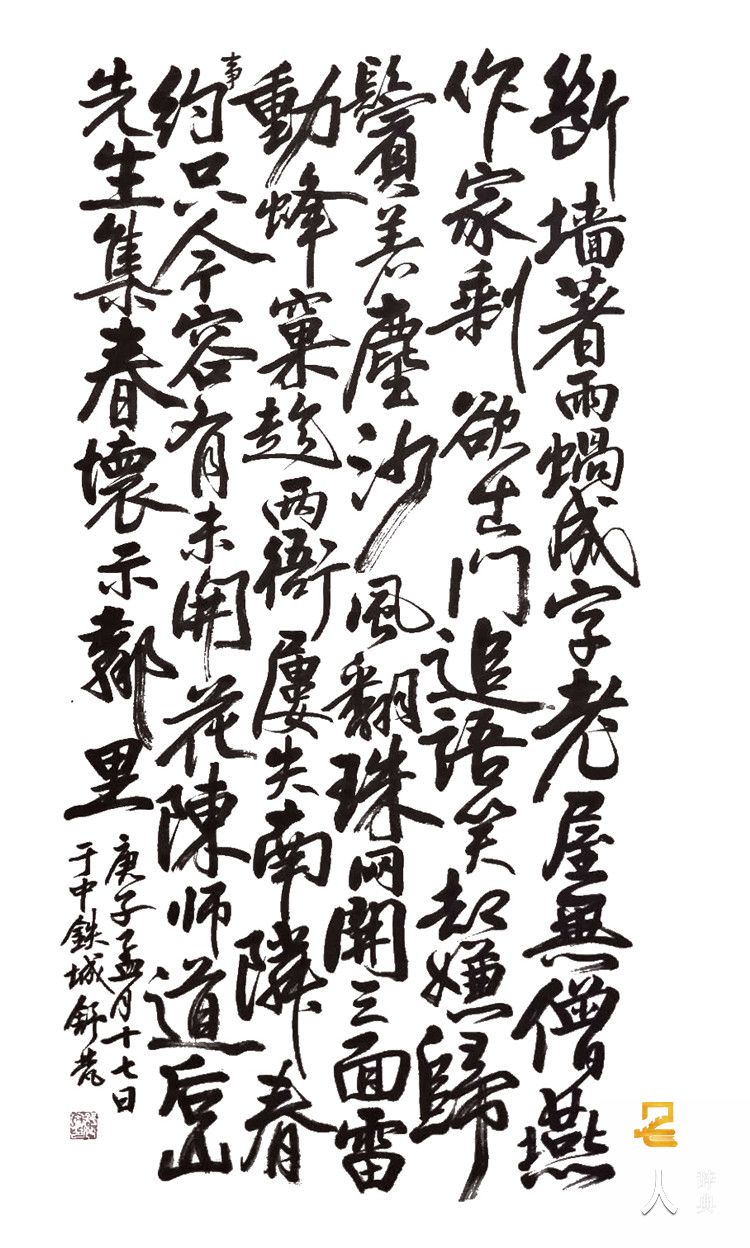 斷墻著雨蝸成字老屋無僧燕
作家剩欲出門追語笑却嫌歸
鬢着塵沙風翻珠網開三面雷
動蜂窠趁兩衙屢失南隣春
事
約只今容有未開花陳師道后山
先生集春懷示鄰里
庚子孟月十七日
于中鉄城舒
人
辞典